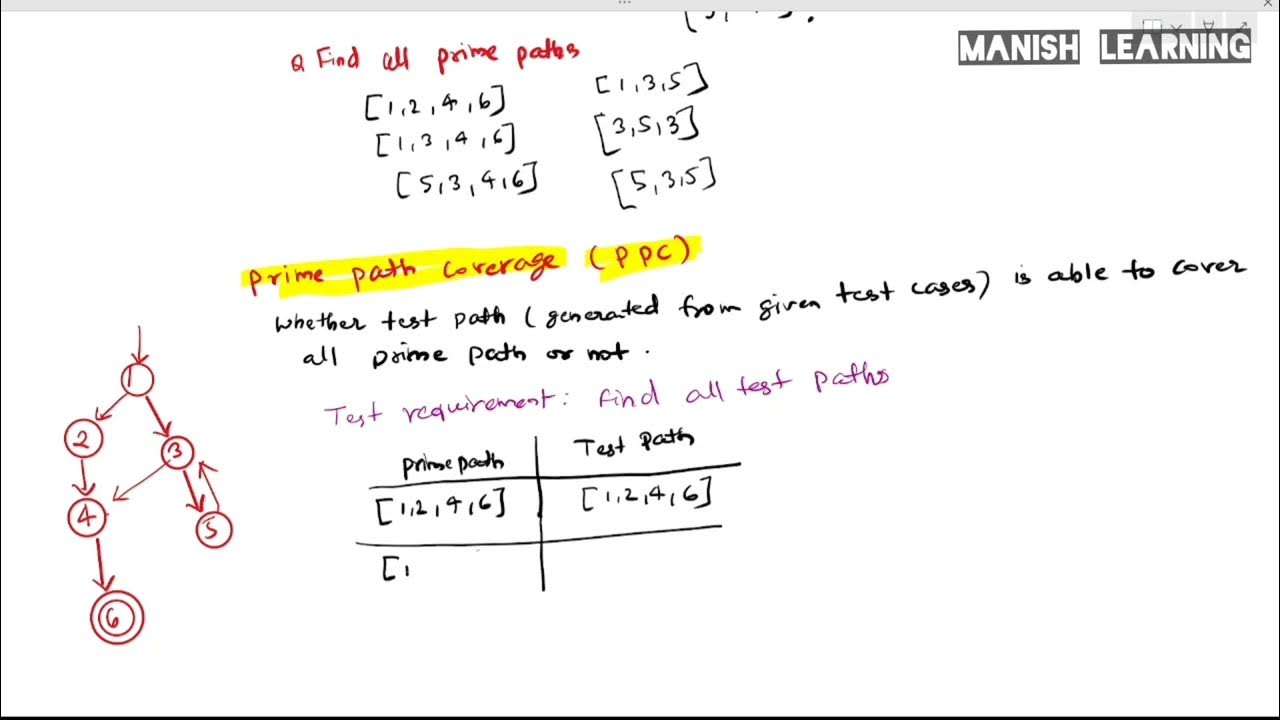 MANISH LEARNING
Q Find all prime paths
[1,2,4,6] [1,3,5]
[1,3,4,6] [3,5,3]
[5,3,4,6] [5,3,5]
Prime path coverage (PPC)
Whether test path (generated from given test cases) is able to cover
all prime path or not.
Test requirement: Find all test paths
Prime path Test Path
[1,2,4,6] [1,2,4,6]
[1
1
2
3
4
5
6